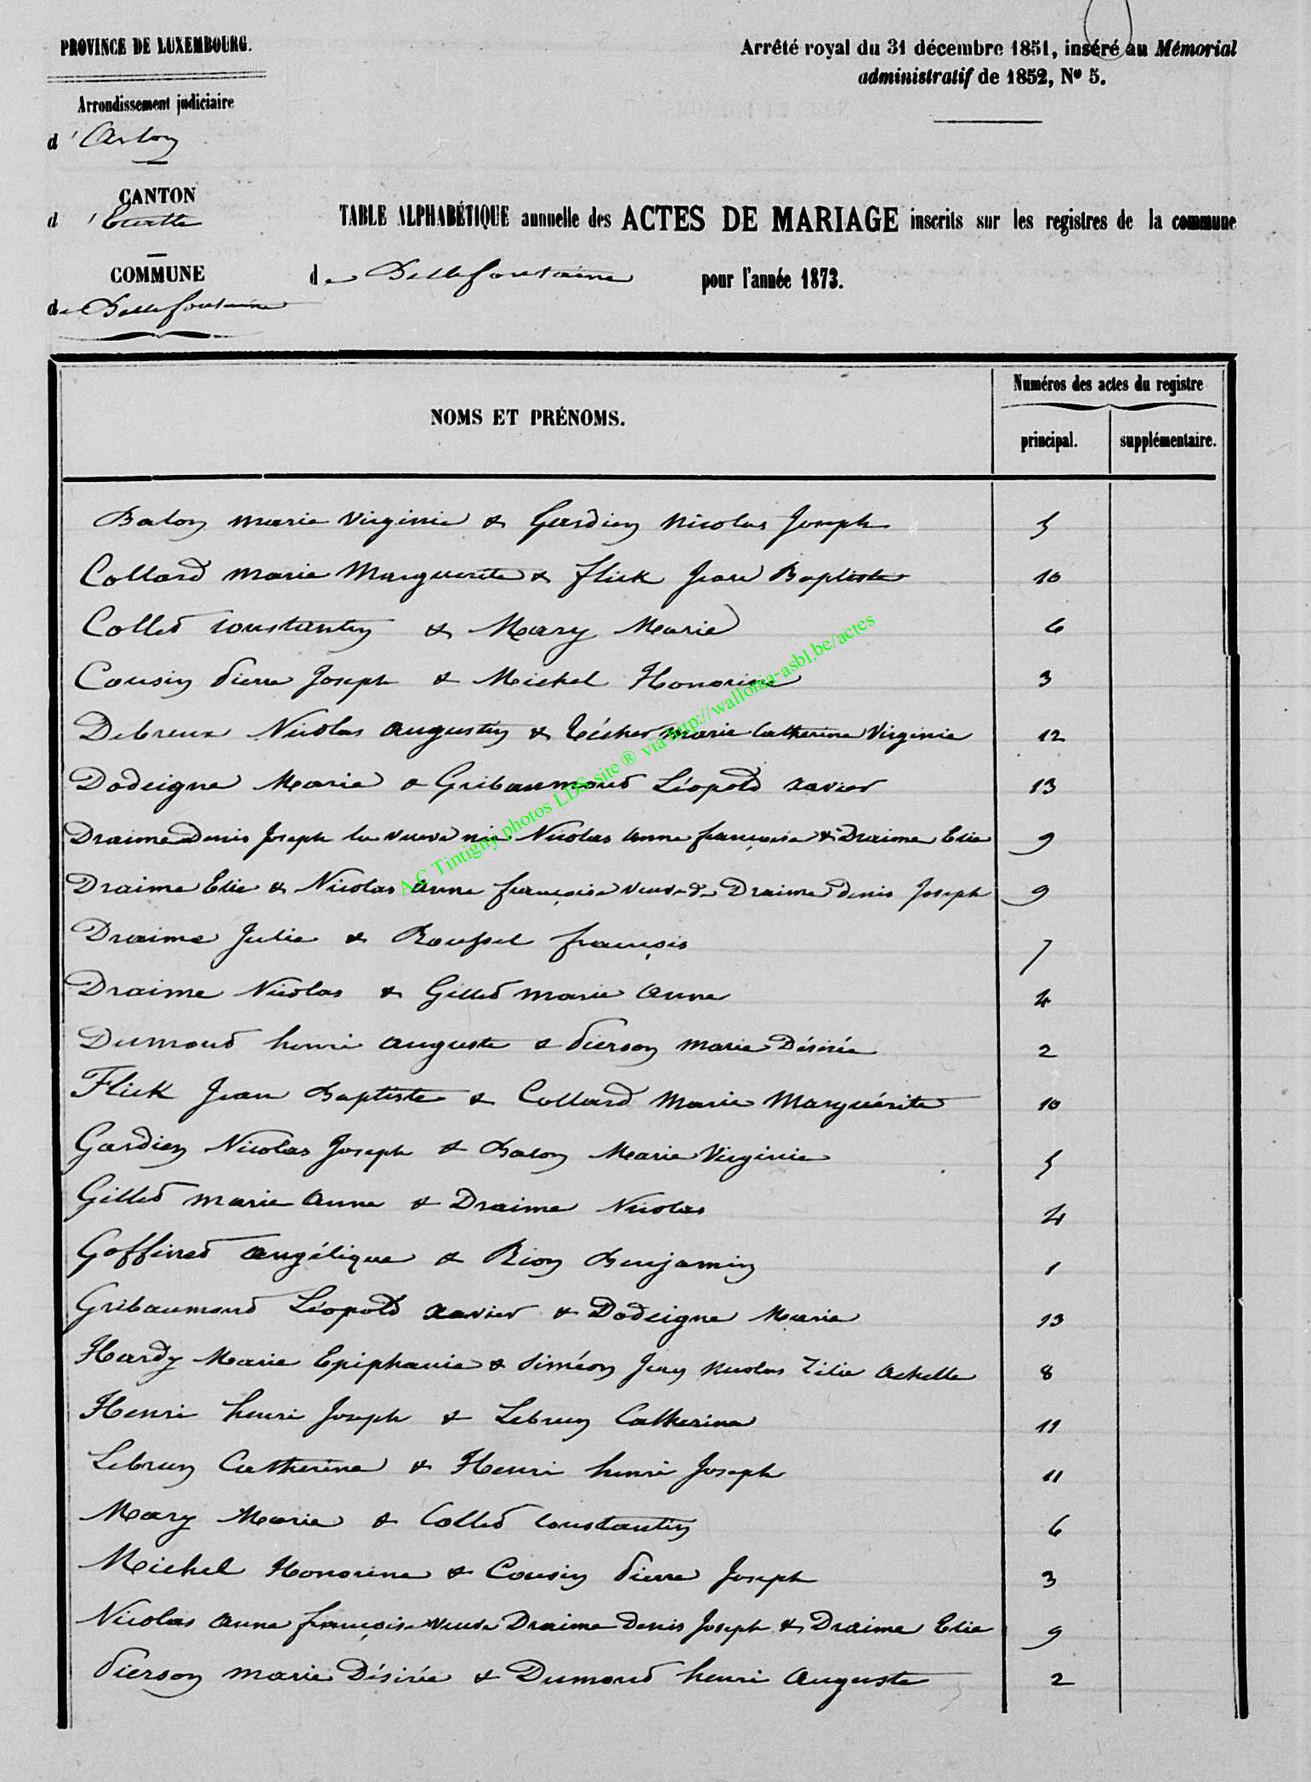 PROVINCE DE LUXEMBOURG.
Arrêté royal du 31 décembre 1851, inséré au Mémorial
administratif de 1852, Nº 5.
Arrondissement judiciaire
d' Arlon
CANTON
d' Etalle
COMMUNE
de Bellefontaine
TABLE ALPHABÉTIQUE annuelle des ACTES DE MARIAGE inscrits sur les registres de la commune
de Bellefontaine pour l'année 1873.
NOMS ET PRÉNOMS.
Numéros des actes du registre
principal. supplémentaire.
Balon marie Virginie & Gardien Nicolas Joseph 5
Collard marie Marguerite & flick Jean Baptiste 10
Collet Constantin & Mary Marie 6
Cousin Pierre Joseph & Michel Honorine 3
Debreux Nicolas augustin & marie Catherine Virginie 12
Dodeigne Marie & Gribaumont Léopold xavier 13
Draime denis Joseph la veuve née Nicolas anne françoise & Draime Elie 9
Draime Elie & Nicolas anne françoise veuve de Draime denis Joseph 9
Draime Julie & Roussel françois 7
Draime Nicolas & Gillet marie anne 4
Dumont henri auguste & Pierson marie Désirée 2
Flick Jean Baptiste & Collard Marie Marguérite 10
Gardien Nicolas Joseph & Balon Marie Virginie 5
Gillet marie anne & Draime Nicolas 4
Goffinet angélique & Rion Benjamin 1
Gribaumont Léopold xavier & Dodeigne Marie 13
Hardy Marie Epiphanie & Siméon Jean Nicolas Achille 8
Henri henri Joseph & Lebrun Catherine 11
Lebrun Catherine & Henri henri Joseph 11
Mary Marie & Collet Constantin 6
Michel Honorine & Cousin Pierre Joseph 3
Nicolas anne françoise veuve Draime Denis Joseph & Draime Elie 9
Pierson marie Désirée & Dumont henri Auguste 2
A.C Tintigny photos LDS site ® via http://wallonia-asbl.be/actes